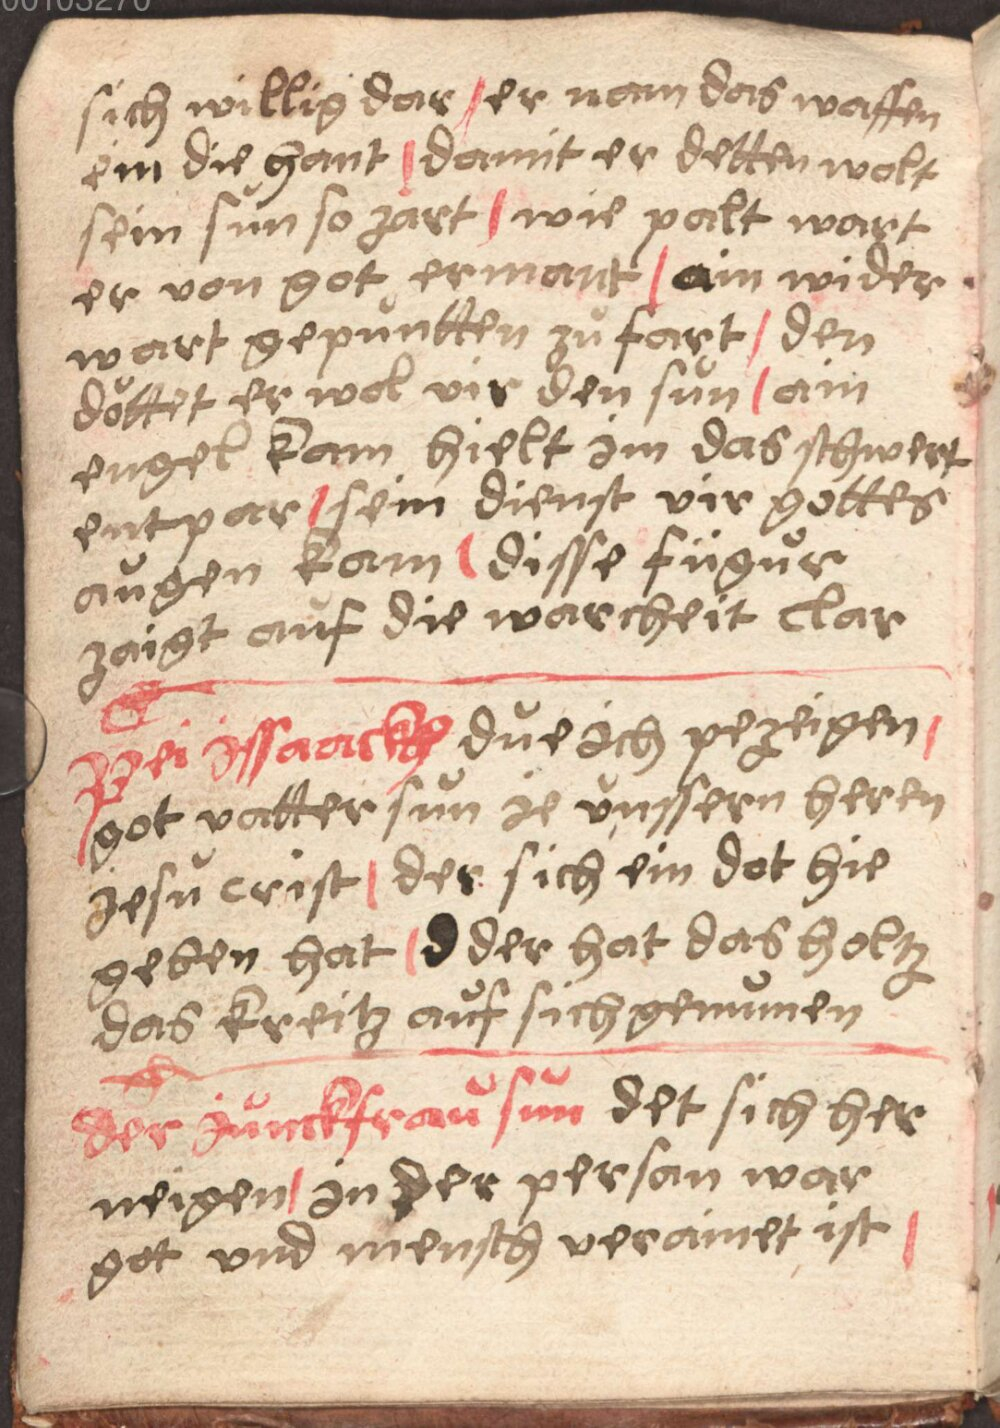 00103270
sich willig dar / er nam das waffen
ein die hant / damit er detten wolt
sein sun so zart / wie palt wart
er von got ermant / ain wider
wart gepuntten zu fart / den
dottet er wol vir den sun / ain
engel kam hielt im das schwert
entpar / sein dienst vir gottes
augen kam / disse fügur
zaigt auf die warcheit clar
Pei issaackh due ich pezeigen /
got vatter sun ie unssern heren
jesu crist / der sich ein dot hie
geben hat / d der hat das holtz
das kreitz auf sich genumen
der junckfrau sun det sich her
neigen / in der persan war
got vnd mensch verainet ist /